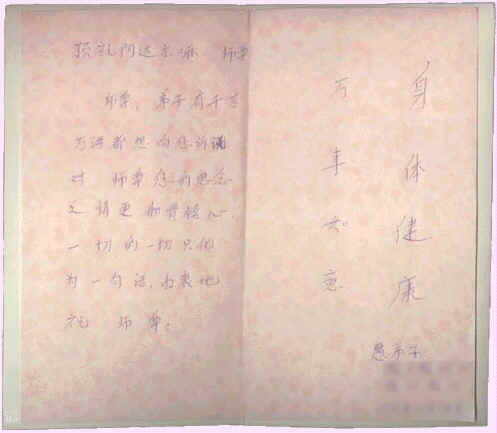 顶礼 师尊
师尊，弟子有千言
万语都想向您诉说
对 师尊您的思念
之情更加 心，
一切的一切只化
为一句话，由衷地
祝 师尊：
身体健康
万事如意
愚弟子